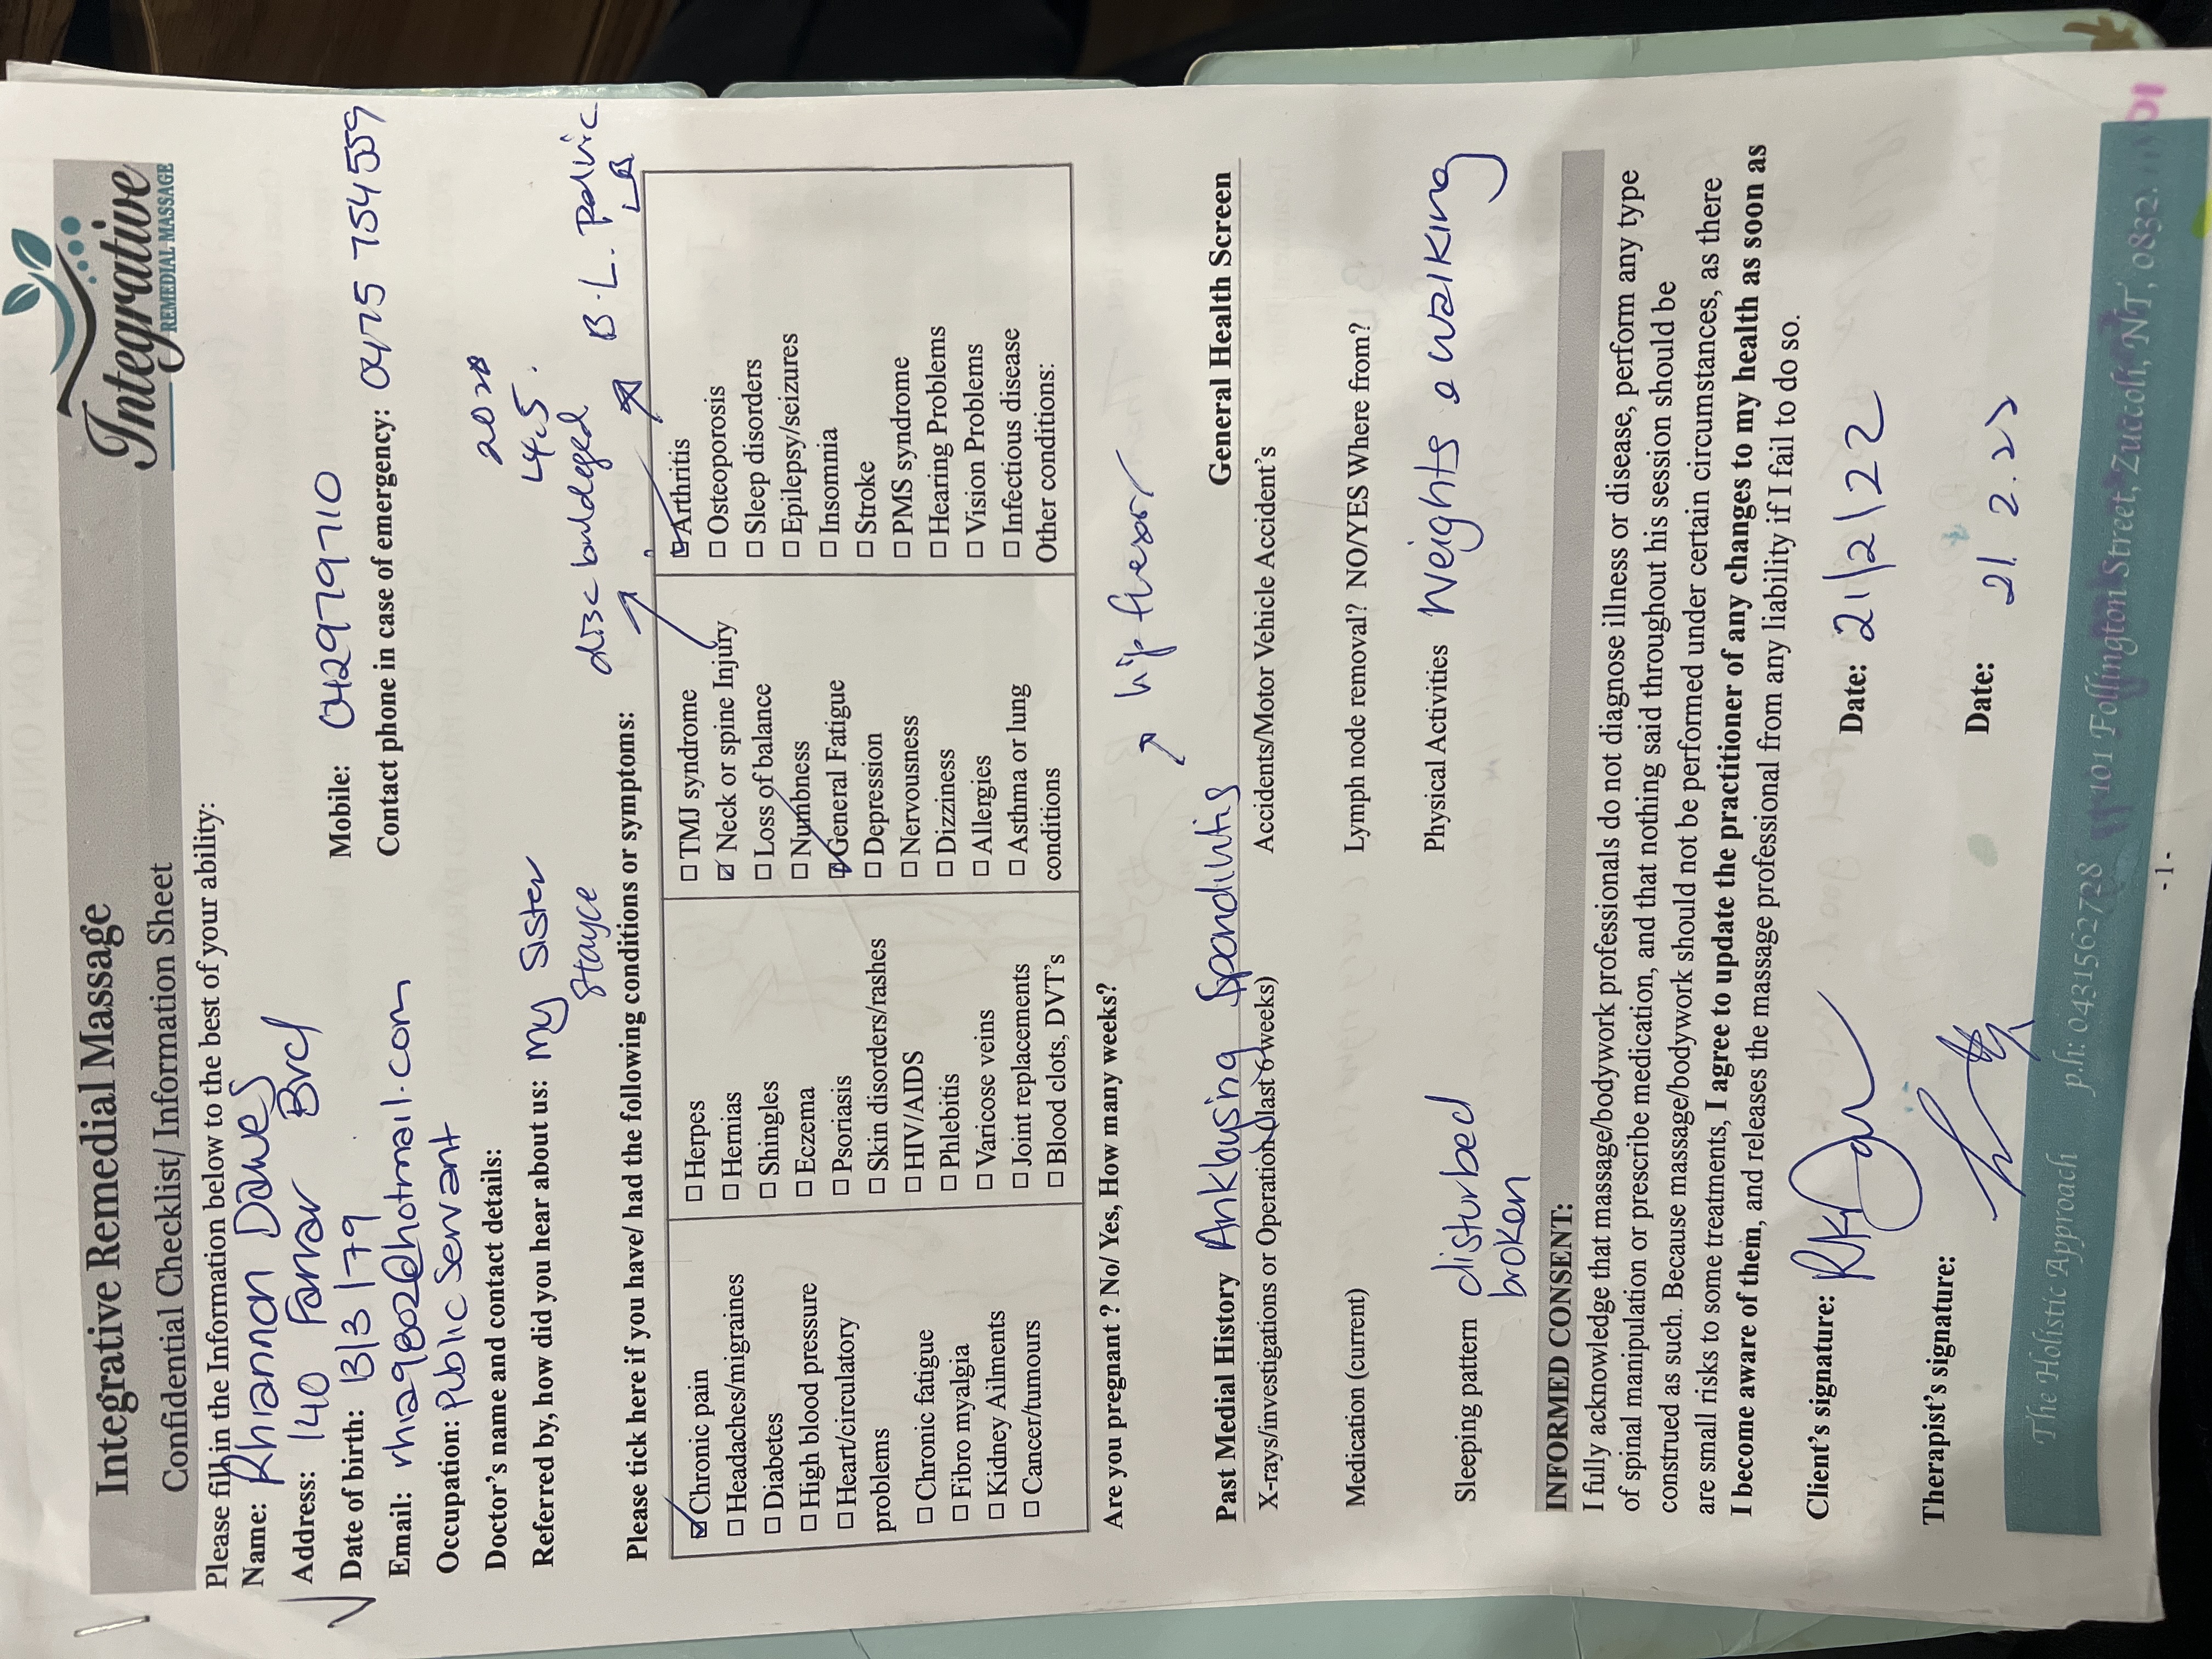 Integrative Remedial Massage
Confidential Checklist/ Information Sheet
Integrative
REMEDIAL MASSAGE
Please fill in the Information below to the best of your ability:
Name: Rhiannon Dawes
Address: 140 Farrar Brd
Mobile: 042979710
Date of birth: 13/3/79
Contact phone in case of emergency: 0475 754559
Email: rhia29802@hotmail.com
Occupation: Public Servant
Doctor's name and contact details:
Referred by, how did you hear about us: my sister
Stayce
2020
L4.5.
disc buldeged
B.L. Pelvic
Please tick here if you have/ had the following conditions or symptoms:
☑ Chronic pain
☐ Headaches/migraines
☐ Diabetes
☐ High blood pressure
☐ Heart/circulatory
problems
☐ Chronic fatigue
☐ Fibro myalgia
☐ Kidney Ailments
☐ Cancer/tumours
☐ Herpes
☐ Hernias
☐ Shingles
☐ Eczema
☐ Psoriasis
☐ Skin disorders/rashes
☐ HIV/AIDS
☐ Phlebitis
☐ Varicose veins
☐ Joint replacements
☐ Blood clots, DVT's
☐ TMJ syndrome
☑ Neck or spine Injury
☐ Loss of balance
☐ Numbness
☑ General Fatigue
☐ Depression
☐ Nervousness
☐ Dizziness
☐ Allergies
☐ Asthma or lung
conditions
☑ Arthritis
☐ Osteoporosis
☐ Sleep disorders
☐ Epilepsy/seizures
☐ Insomnia
☐ Stroke
☐ PMS syndrome
☐ Hearing Problems
☐ Vision Problems
☐ Infectious disease
Other conditions:
Are you pregnant ? No/ Yes, How many weeks?
hip flexor
Past Medial History Anklosing Spondilitis
General Health Screen
X-rays/investigations or Operation (last 6 weeks)
Accidents/Motor Vehicle Accident's
Medication (current)
Lymph node removal? NO/YES Where from?
Sleeping pattern disturbed
broken
Physical Activities Weights & walking
INFORMED CONSENT:
I fully acknowledge that massage/bodywork professionals do not diagnose illness or disease, perform any type
of spinal manipulation or prescribe medication, and that nothing said throughout his session should be
construed as such. Because massage/bodywork should not be performed under certain circumstances, as there
are small risks to some treatments, I agree to update the practitioner of any changes to my health as soon as
I become aware of them, and releases the massage professional from any liability if I fail to do so.
Client's signature:
Date: 21/2/22
Therapist's signature:
Date: 21.2.22
The Holistic Approach p.h: 0431562728 101 Follington Street, Zuccoli, NT, 0832.
- 1 -